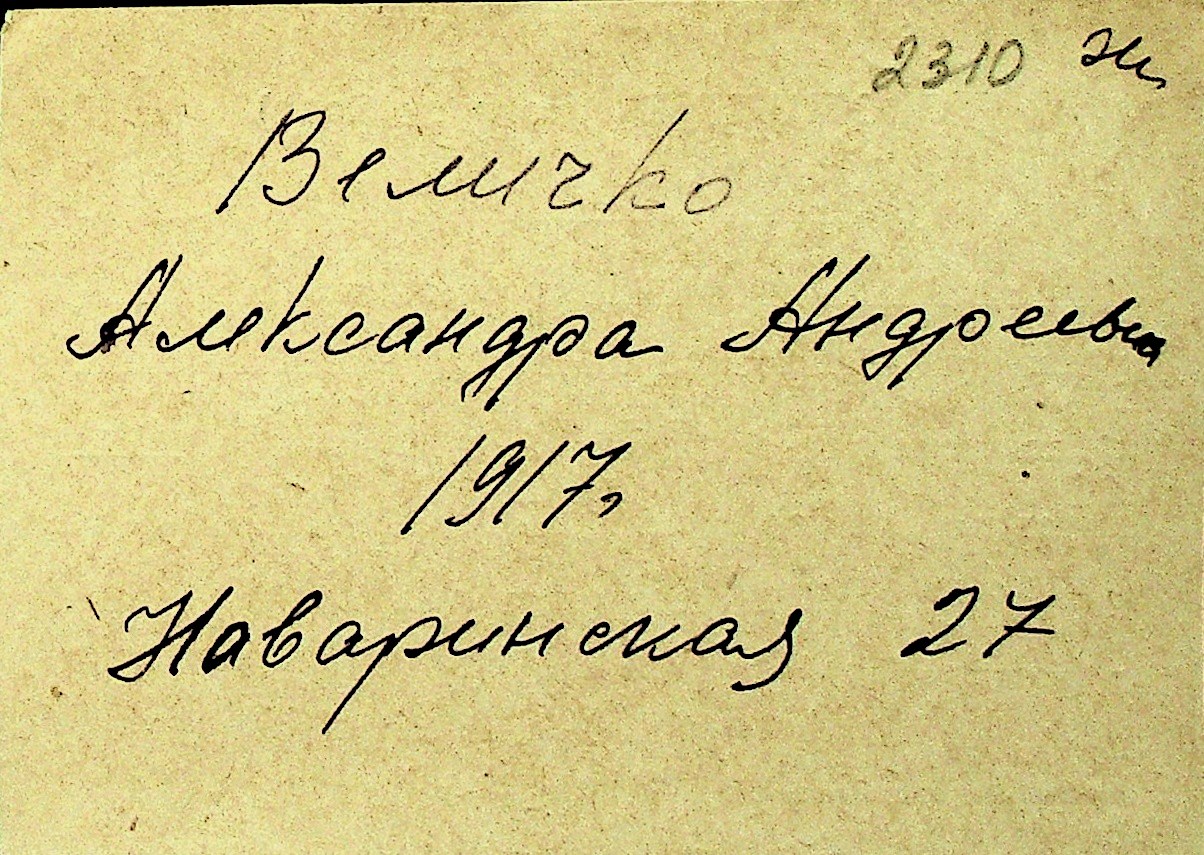 2310
Величко
Александра Андреевна
1917г
Наваринская 27